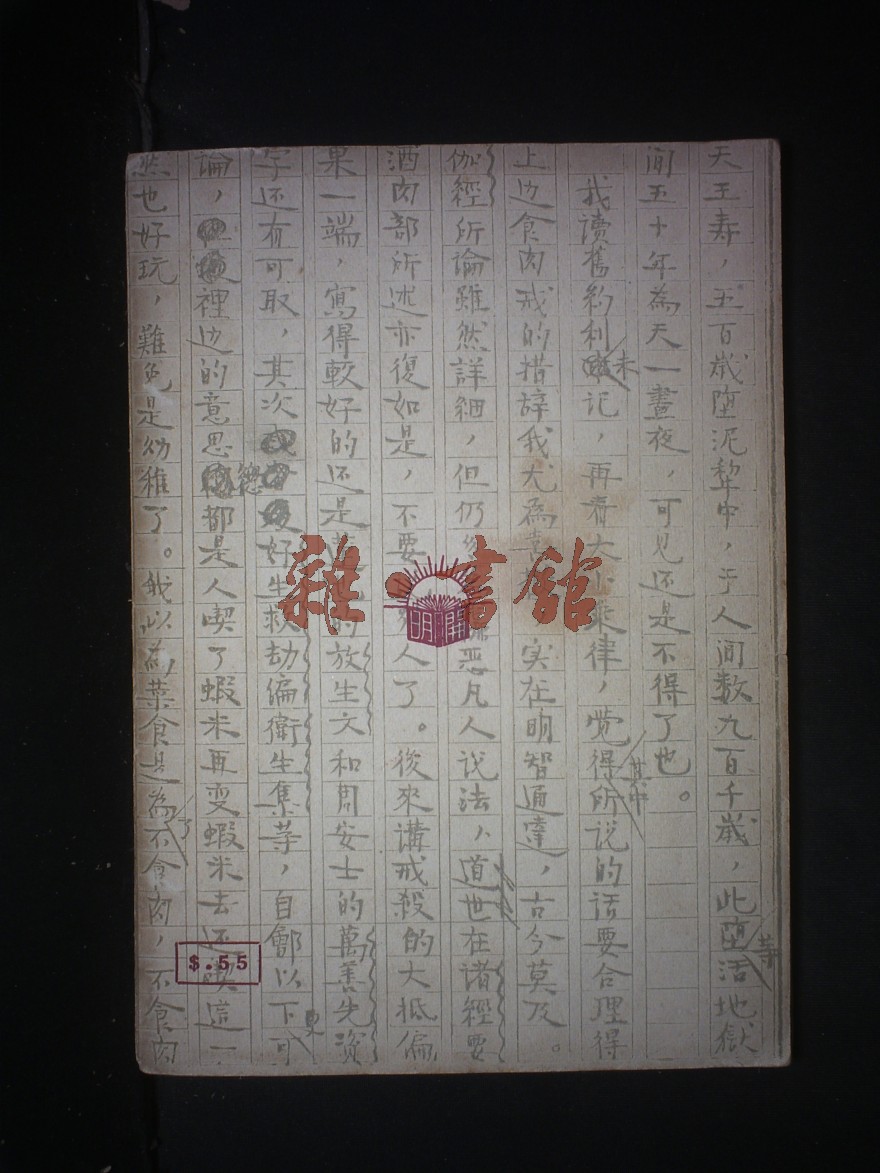 天王寿，五百歲堕泥犂中，于人间数九百千歲，此等堕活地獄
间五十年為天一晝夜，可见还是不得了也。
我读舊約利未记，再看大小乘律，觉得其中所说的话要合理得
上边食肉戒的措辞我尤為喜 实在明智通達，古今莫及。
伽經所论雖然詳細，但仍 恶凡人说法，道世在诸經要
酒肉部所述亦復如是，不要 人了。後來講戒殺的大抵偏
果一端，寫得較好的还是 的放生文和周安士的萬善先资
字还有可取，其次 好生救劫编衛生集等，自鄶以下更可
论， 裡边的意思總都是人喫了蝦米再变蝦米去还喫这一
然也好玩，難免是幼稚了。我以為菜食是為了不食肉，不食肉
雜·書館
明開
$.55